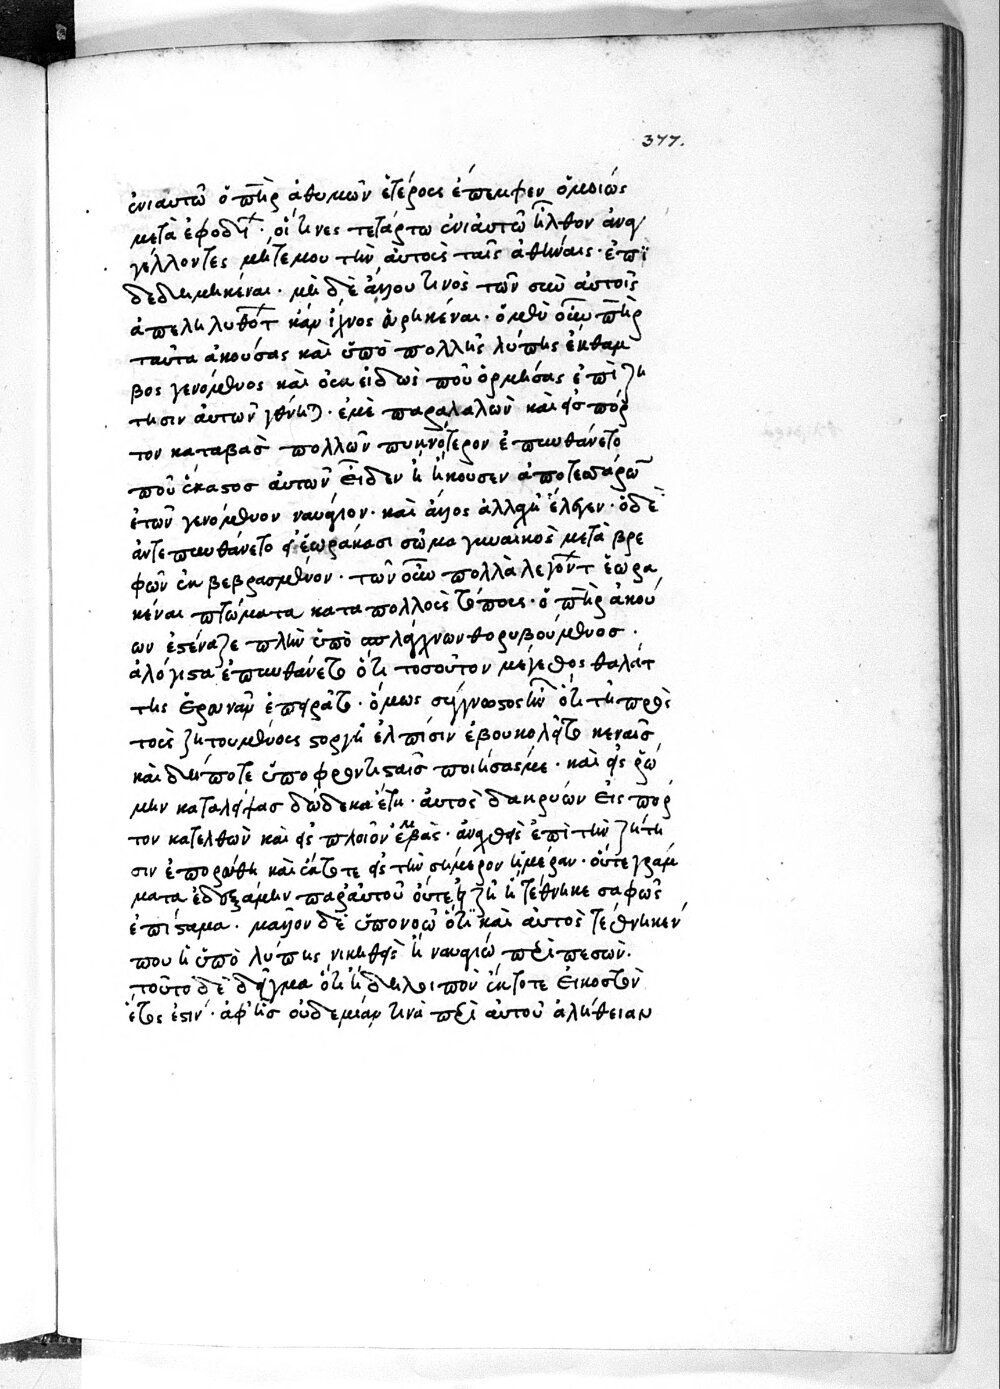 377.
ἐνιαυτῶ ὁ πη̅ρ ἀθυμῶν ἑτέρους ἔπεμψεν ὁμοίως
μετὰ ἐφοδι · οἵ τινες τετάρτω ἐνιαυτῶ ἦλθον ἀναγ
γέλλοντες μήτε μου τὴν αὐτοὺς ταῖς ἀθήναις · ἐπι
δεδημηκέναι · μὴ δὲ ἄλλου τινὸς τῶν σὺν αὐτοῖς
ἀπεληλυθότ κἂν ἴχνος εὑρηκέναι · ὁ μὲν οὖν πη̅ρ
ταῦτα ἀκούσας καὶ ὑπὸ πολλῆς λύπης ἔκθαμ
βος γενόμενος καὶ οὐκ εἰδὼς ποῦ ὁρμήσας ἐπὶ ζή
τησιν αὐτῶν γένηται · ἐμὲ παραλαλὼν καὶ εἰς πόρ
τον καταβὰς πολλῶν πυκνότερον ἐπυνθάνετο
ποῦ ἕκαστος αὐτῶν εἶδεν ἢ ἤκουσεν ἀπὸ τεσσάρων
ἐτῶν γενόμενον ναυάγιον · καὶ ἄλλος ἀλλαχῆ ἔλεγεν · ὁ δὲ
ἀντεπυνθάνετο εἰ ἑωράκασι σῶμα γυναικὸς μετὰ βρε
φῶν ἐκβεβρασμένον · τῶν οὖν πολλὰ λεγόντ ἑωρα
κέναι πτώματα κατὰ πολλοὺς τόπους · ὁ πη̅ρ ἀκού
ων ἐστέναζε πλὴν ὑπὸ σπλάγχνων θορυβούμενος ·
ἀλόγιστα ἐπυνθάνετο ὅτι τοσοῦτον μέγεθος θαλάτ
της ἐρευνᾶν ἐπειρᾶτο · ὅμως συγγνωστὸς ἦν ὅτι τῆ πρὸς
τοὺς ζητουμένους στοργῆ ἐλπίσιν ἐβουκολεῖτο κεναῖς
καὶ δή ποτε ὑπὸ φροντισταῖς ποιήσας με · καὶ εἰς ῥώ
μην καταλείψας δώδεκα ἔτη · αὐτὸς δακρύων εἰς πόρ
τον κατελθὼν καὶ εἰς πλοῖον ἐμβὰς · ἀναχθεὶς ἐπὶ τὴν ζήτη
σιν ἐπορεύθη καὶ ἔκτοτε εἰς τὴν σήμερον ἡμέραν · οὔτε γράμ
ματα ἐδεξάμην παρ' αὐτοῦ οὔτε εἰ ζῆ ἢ τέθνηκε σαφῶς
ἐπίσταμαι · μᾶλλον δὲ ὑπονοῶ ὅτι καὶ αὐτὸς τέθνηκέν
που ἢ ὑπὸ λύπης νικηθεὶς ἢ ναυαγίω περιπεσών.
τούτου δὲ δεῖγμα ὅτι ἤδη λοιπὸν ἔκτοτε εἰκοστὸν
ἔτος ἐστίν · ἀφ' ἧς οὐδεμίαν τινὰ περὶ αὐτοῦ ἀλήθειαν